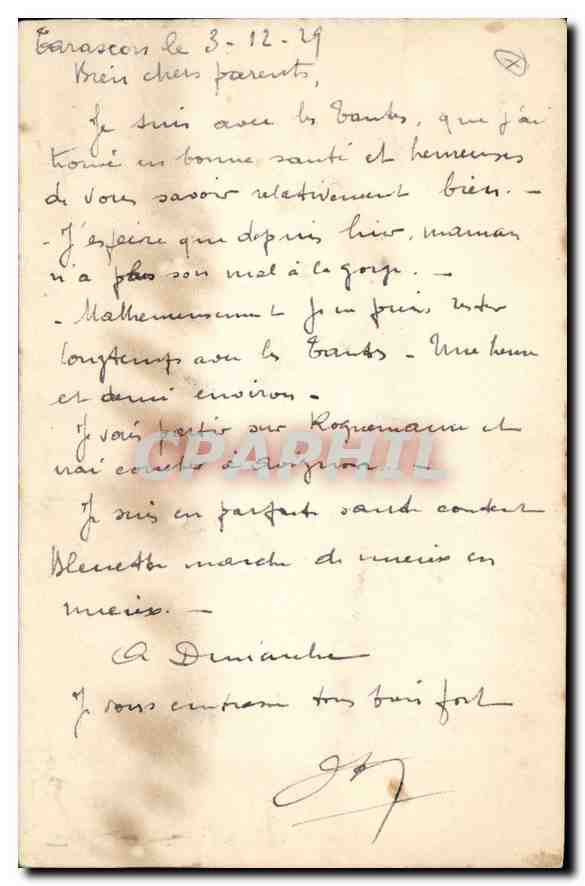 Tarascon le 3-12-29
Bien chers parents,
Je suis avec les Tantes, que j'ai
trouvé en bonne santé et heureuses
de vous savoir relativement bien. -
- J'espère que depuis hier, maman
n'a plus son mal à la gorge. -
- Malheureusement je ne puis rester
longtemps avec les Tantes - Une heure
et demi environ -
Je vais partir sur Roquemaure et
irai coucher à Avignon. -
CPAPHIL
Je suis en parfaite santé content
Bleuette marche de mieux en
mieux. -
A Dimanche
Je vous embrasse tous bien fort